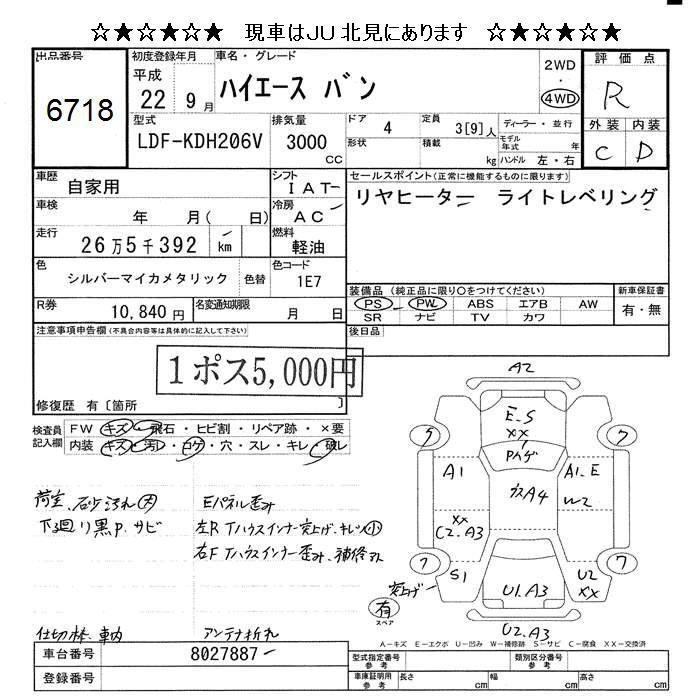 ☆★☆★☆★ 現車はJU北見にあります ☆★☆★☆★
出品番号
6718
初度登録年月
平成
22 9月
車名・グレード
ハイエース バン
2WD
・
4WD
評価点
R
外装 内装
C D
型式
LDF-KDH206V
排気量
3000
CC
ドア 4
形状
定員 3[9]人
積載 kg
ディーラー・並行
モデル年式 年
ハンドル 左・右
車歴 自家用
シフト IAT
車検 年 月( 日)
冷房 AC
走行 26万5千392 km
燃料 軽油
色 シルバーマイカメタリック 色替
色コード 1E7
R券 10,840円
名変通知期限 月 日
セールスポイント(正常に機能するものに限ります)
リヤヒーター ライトレベリング
装備品(純正品に限り○をつけてください)
PS PW ABS エアB AW
SR ナビ TV カワ
新車保証書
有・無
後日品
注意事項申告欄(不具合内容等は具体的に記入して下さい)
1ポス5,000円
修復歴 有〔箇所 〕
検査員記入欄
FW キズ・飛石・ヒビ割・リペア跡・×要
内装 キズ・汚レ・コゲ・穴・スレ・キレ・破レ
荷室、砂汚れ大
下廻り黒P.サビ
Eパネル歪み
左R Tハウスインナー突上げ、キレツ小
右F Tハウスインナー歪み、補修

車内
アンテナ折れ
A2
E.S
XX
7
A1
A1.E
W2
A4
XX
C2.A3
7
S1
突上げ
U1.A3
U2
XX
有
スペア
U2.A3
A-キズ E-エクボ U-凹み W-補修跡 S-サビ C-腐食 XX-交換済
車台番号 8027887
登録番号
型式指定番号 参考
類別区分番号 参考
車庫証明用 参考
長さ cm 幅 cm 高さ cm